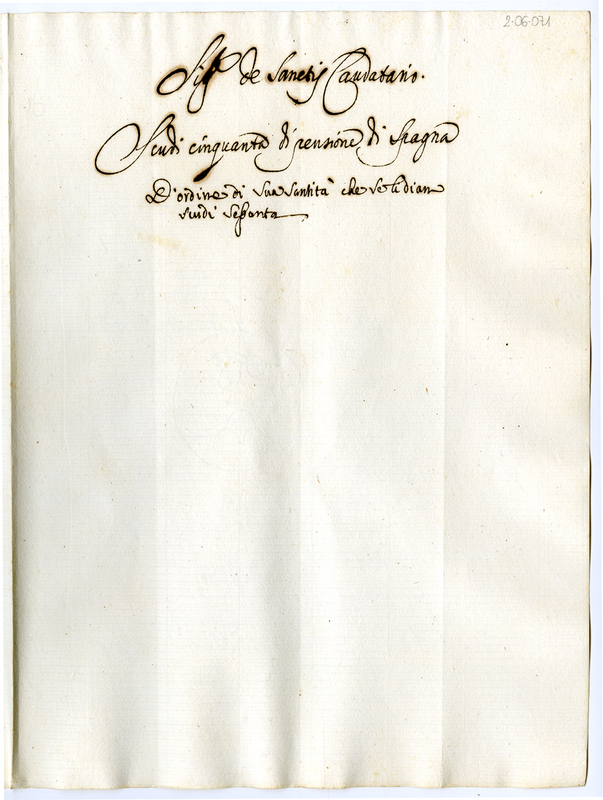 2-06-071
Sig.r de Sanctis Caudatario.
Scudi cinquanta di pensione di Spagna
D'ordine di Sua Santità che se li dian
scudi sessanta